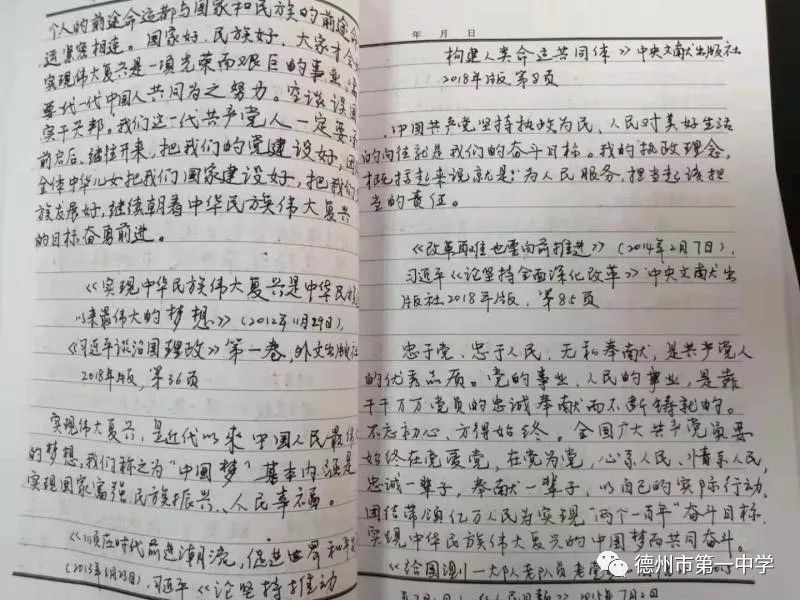 个人的前途命运都与国家和民族的前途命
运紧密相连。国家好、民族好,大家才会
实现伟大复兴是一项光荣而艰巨的事业,需
要一代一代中国人共同为之努力。空谈误国
实干兴邦。我们这一代共产党人一定要承
前启后、继往开来,把我们的党建设好,团
全体中华儿女把我们国家建设好,把我们
族发展好,继续朝着中华民族伟大复兴
的目标奋勇前进。
《实现中华民族伟大复兴是中华民族
以来最伟大的梦想》(2012年11月29日),
《习近平谈治国理政》第一卷,外文出版社
2018年版,第36页
实现伟大复兴,是近代以来中国人民最伟
的梦想,我们称之为"中国梦"基本内涵是
实现国家富强、民族振兴、人民幸福。
《顺应时代前进潮流,促进世界和平
(2013年3月23日),习近平《论坚持推动
年 月 日
构建人类命运共同体》中央文献出版社
2018年版第8页
中国共产党坚持执政为民、人民对美好生活
的向往就是我们的奋斗目标。我的执政理念,
概括起来说就是:为人民服务,担当起该担
当的责任。
《改革再难也要向前推进》(2014年2月7日),
习近平《论坚持全面深化改革》中央文献出
版社2018年版,第85页
忠于党、忠于人民、无私奉献,是共产党人
的优秀品质。党的事业,人民的事业,是靠
千千万万党员的忠诚奉献而不断铸就的。
不忘初心、方得始终。全国广大共产党员要
始终在党爱党,在党为党,心系人民、情系人民,
忠诚一辈子,奉献一辈子,以自己的实际行动,
团结带领亿万人民为实现"两个一百年"奋斗目标,
实现中华民族伟大复兴的中国梦而共同奋斗。
《给国测一大队老队员老党员
2015年7月2日
德州市第一中学